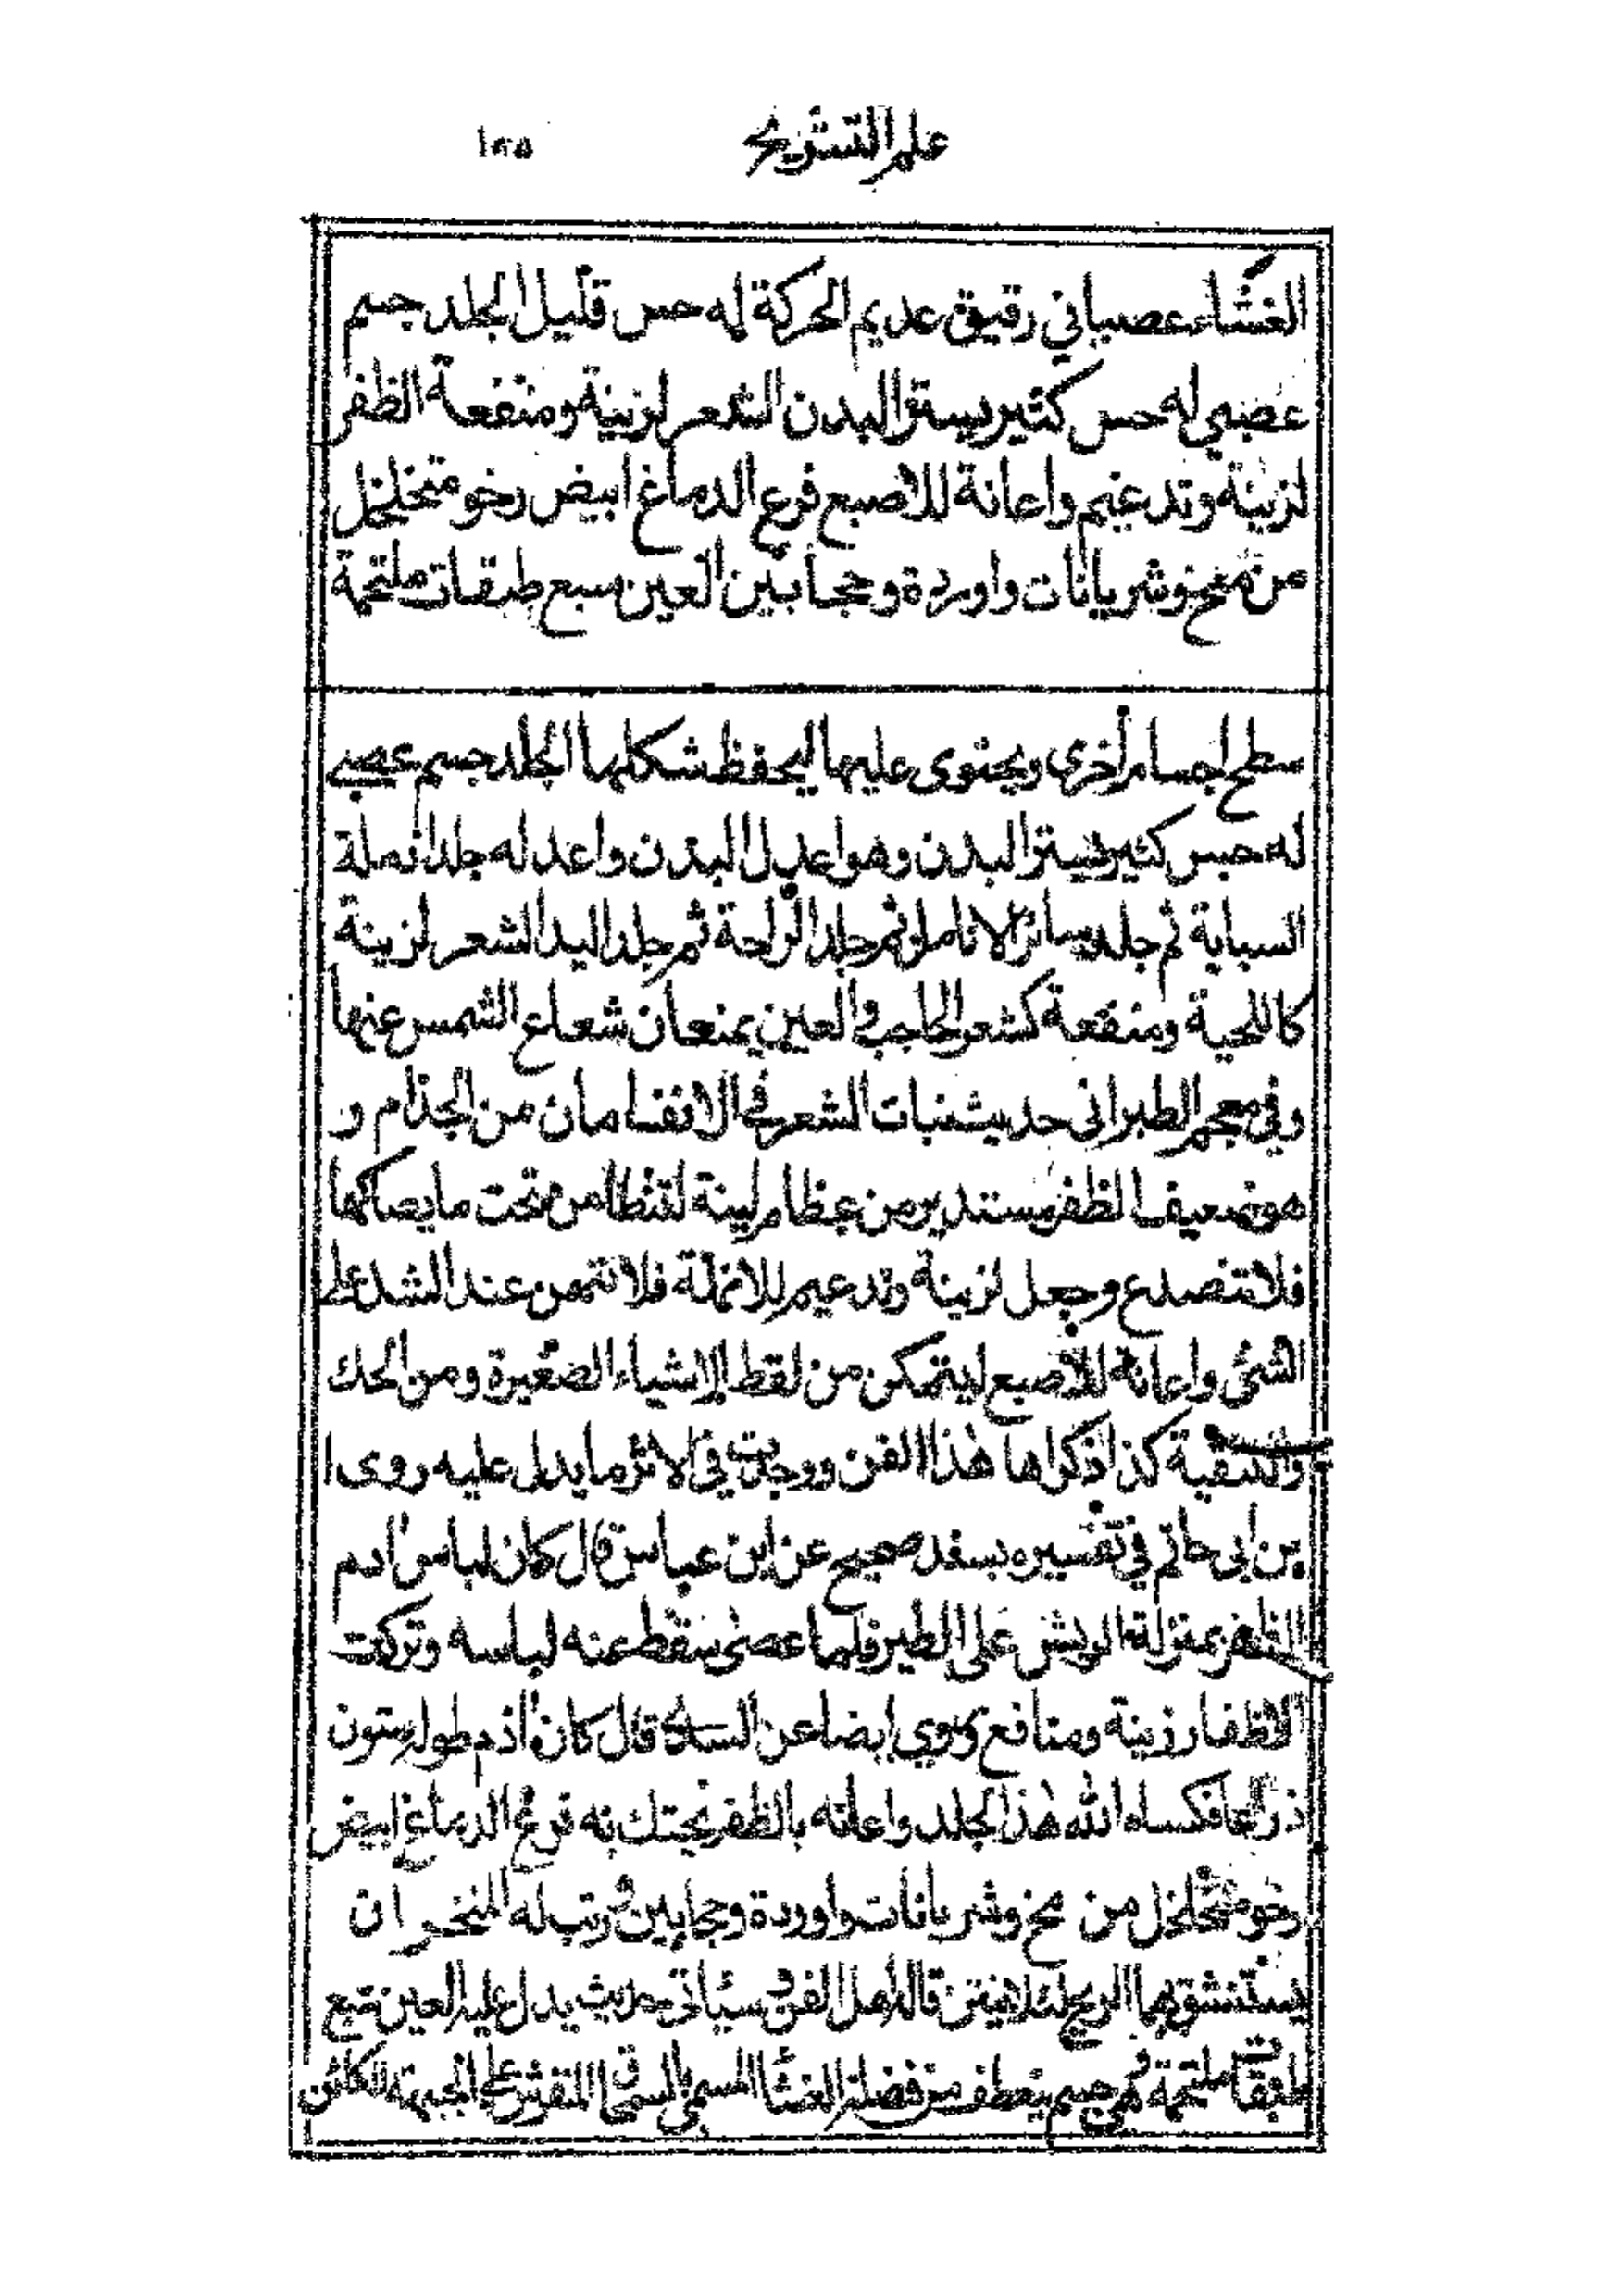 علم التشريح ١٤٥
الغشاء عصباني رقيق عديم الحركة له حس قليل الجلد جسم
عصبي له حس كثير يستر البدن الشعر لزينة ومنفعة الظفر
لزينة وتدعيم واعانة للاصبع فرع الدماغ ابيض رخو متخلخل
من مخ وشريانات واوردة وحجابين العين سبع طبقات ملتحمة
سطح اجسام أخرى ويحتوى عليها ليحفظ شكلها الجلد جسم عصبي
له حس كثير يستر البدن وهو اعدل البدن واعدله جلد انملة
السبابة ثم جلد سائر الانامل ثم جلد الراحة ثم جلد اليد الشعر لزينة
كاللحية ومنفعة كشعر الحاجب والعين يمنعان شعاع الشمس عنها
وفي معجم الطبراني حديث نبات الشعر في الانف امان من الجذام و
هو ضعيف الظفر مستدير من عظام لينة لتتطامن تحت ما يصاكها
فلا تنصدع وجعل لزينة وتدعيم للانملة فلا تهن عند الشد على
الشئ واعانة للأصبع ليتمكن من لقط الاشياء الصغيرة ومن الحك
والتنقية كذا ذكر اهل هذا الفن ووجدت في الاثر ما يدل عليه روى ا
بن ابى حاتم في تفسيره بسند صحيح عن ابن عباس قال كان لباس ادم
الظفر بمنزلة الريش على الطير فلما عصى سقط عنه لباسه وتركت
الاظفار زينة ومنافع وروي ايضا عن السدى قال كان أدم طوله ستون
ذراعا فكساه الله هذا الجلد واعانه بالظفر يحتك به فرع الدماغ ابيض
رخو متخلخل من مخ وشريانات واوردة وحجابين ثم رتب له المنخران
يستنشق بهما الريح لئلا ينتن قاله اهل الفن وسيأتى حديث يدل عليه العين سبع
طبقات ملتحمة وهي جسم ينعطف من فضلة الغشا المسمى بالسمحاق المتفرش على الجبهة الكائن